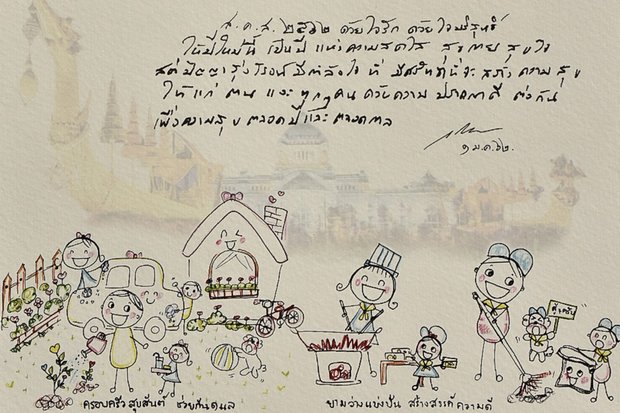 ส.ค.ส. ๒๕๖๒ ด้วยใจรัก ด้วยใจบริสุทธิ์
ให้ปีใหม่นี้ เป็นปี แห่งความสดใส สุขกาย สุขใจ
สติปัญญารุ่งโรจน์ มีกำลังใจ ที่ จะสร้าง ความสุข
ให้แก่ ตน และ ทุกๆคน ด้วยความ ปรารถนาดี ต่อกัน
เพื่อความสุข ตลอดปีและ ตลอดกาล
๑ ม.ค. ๖๒
ครอบครัว สุขสันต์ ช่วยกันดูแล
ยามว่างแบ่งปัน สร้างสรรค์ ความดี